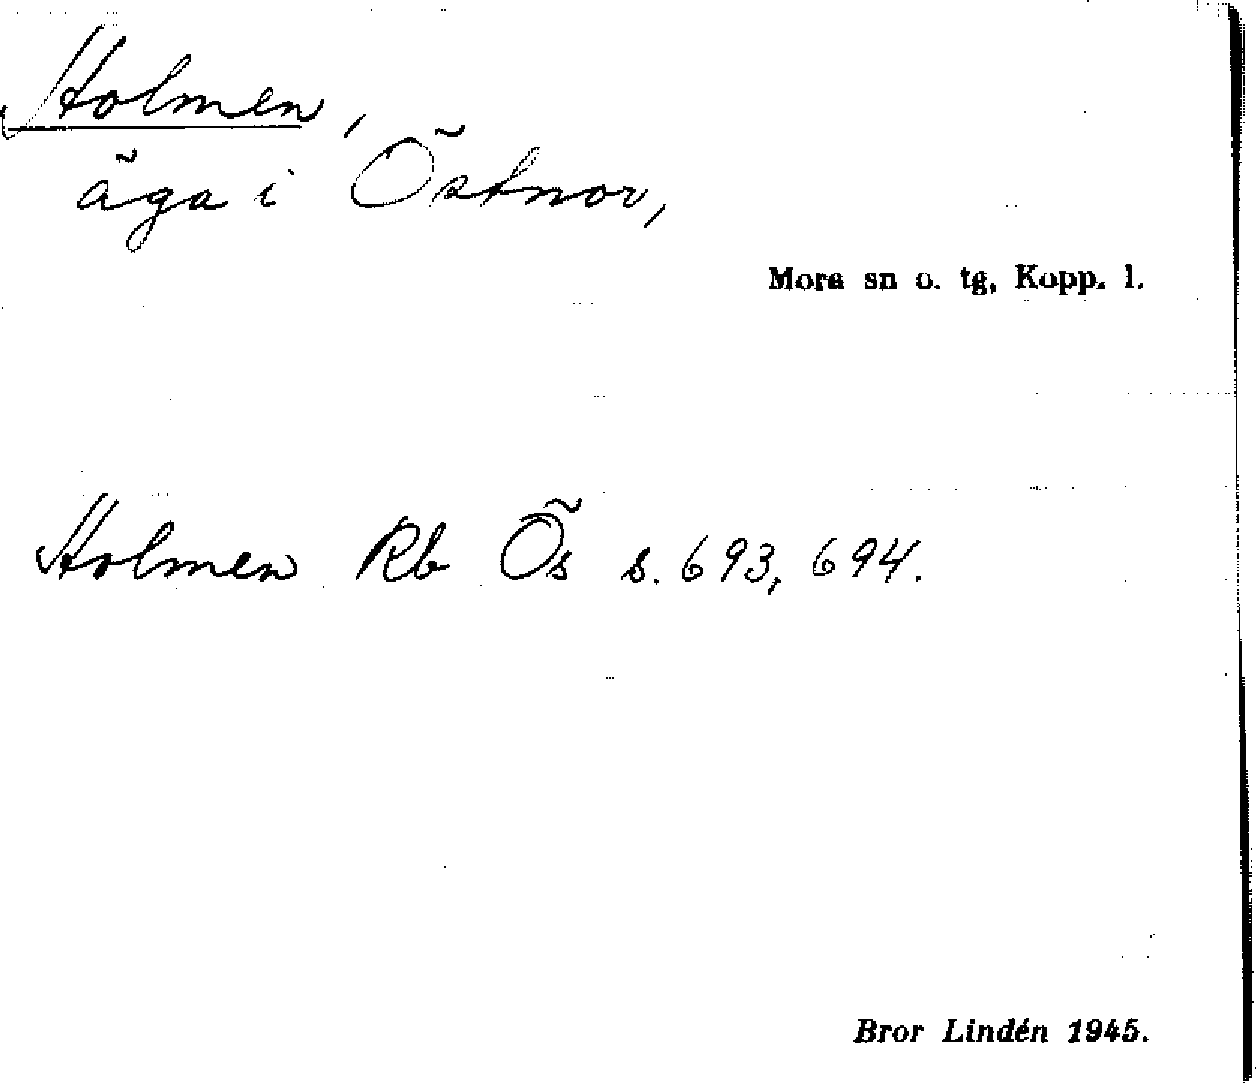 Holmen,
äga i Östnor,
Mora sn o. tg, Kopp. l.
Holmen Rb Ös s. 693, 694.
Bror Lindén 1945.